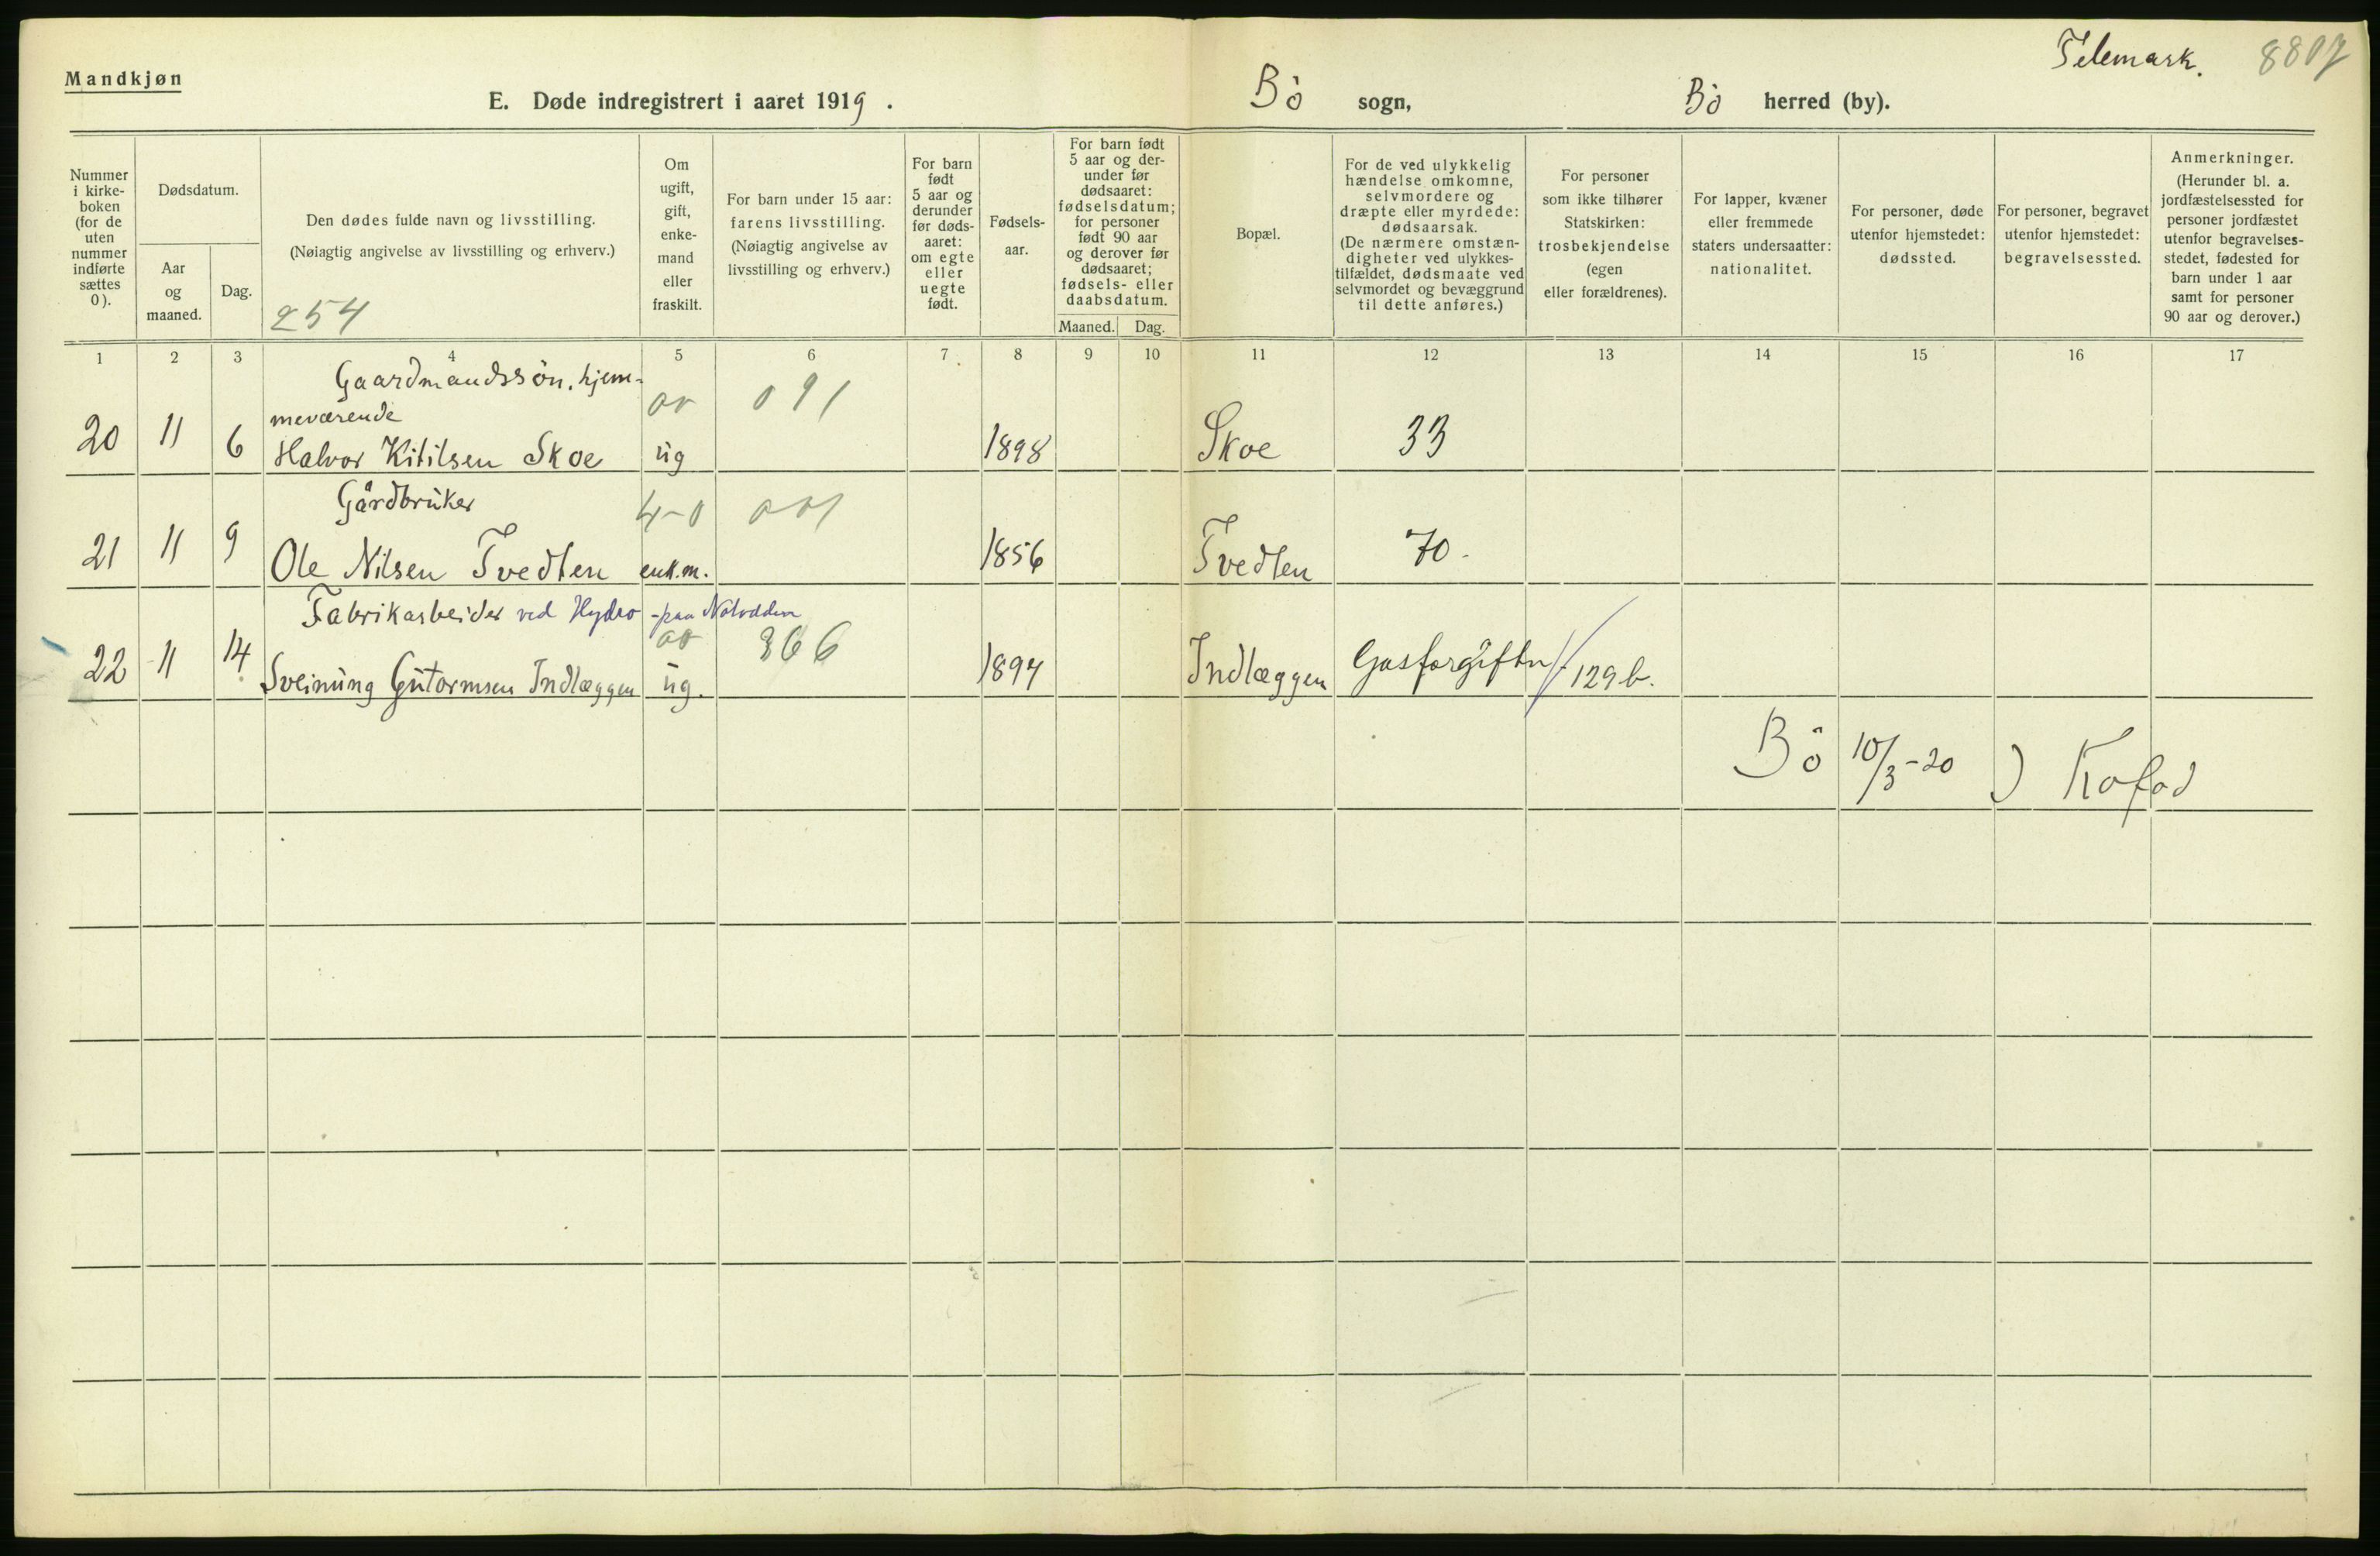 Telemark. 8807
Mandkjøn
E. Døde indregistrert i aaret 1919 . Bö sogn, Bö herred (by).
Nummer i kirke- boken (for de uten nummer indførte sættes 0).
Dødsdatum.
Aar og maaned.
Dag.
Den dødes fulde navn og livsstilling.
(Nøiagtig angivelse av livsstilling og erhverv.)
254
Om ugift, gift, enke- mand eller fraskilt.
For barn under 15 aar: farens livsstilling.
(Nøiagtig angivelse av livsstilling og erhverv.)
For barn født 5 aar og derunder før døds- aaret: om egte eller uegte født.
Fødsels- aar.
For barn født 5 aar og der- under før dødsaaret: fødselsdatum; for personer født 90 aar og derover før dødsaaret; fødsels- eller daabsdatum.
Maaned. Dag.
Bopæl.
For de ved ulykkelig hændelse omkomne, selvmordere og dræpte eller myrdede: dødsaarsak.
(De nærmere omstæn- digheter ved ulykkes- tilfældet, dødsmaate ved selvmordet og bevæggrund til dette anføres.)
For personer som ikke tilhører Statskirken: trosbekjendelse (egen eller forældrenes).
For lapper, kvæner eller fremmede staters undersaatter: nationalitet.
For personer, døde utenfor hjemstedet: dødssted.
For personer, begravet utenfor hjemstedet: begravelsessted.
Anmerkninger.
(Herunder bl. a. jordfæstelsessted for personer jordfæstet utenfor begravelses- stedet, fødested for barn under 1 aar samt for personer 90 aar og derover.)
1 2 3 4 5 6 7 8 9 10 11 12 13 14 15 16 17
Gaardmandssön, hjem-
meværende 091
20 11 6 Halvor Kitilsen Skoe ug 1898 Skoe 33
Gårdbruker 4-0 001
21 11 9 Ole Nilsen Tvedten enk.m. 1856 Tvedten 70.
Fabrikarbeider ved Hydro - paa Notodden
366
22 11 14 Sveinung Gutormsen Indlæggen ug. 1894 Indlæggen Gasforgiftn 129b.
Bö 10/3-20 Kofod